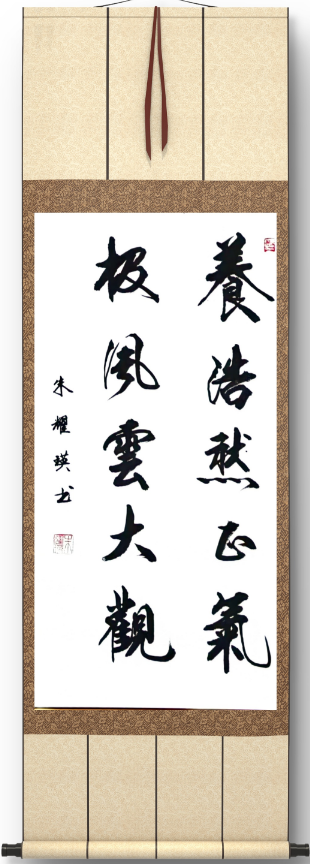 養浩然正氣
极風雲大觀
朱耀瑛书